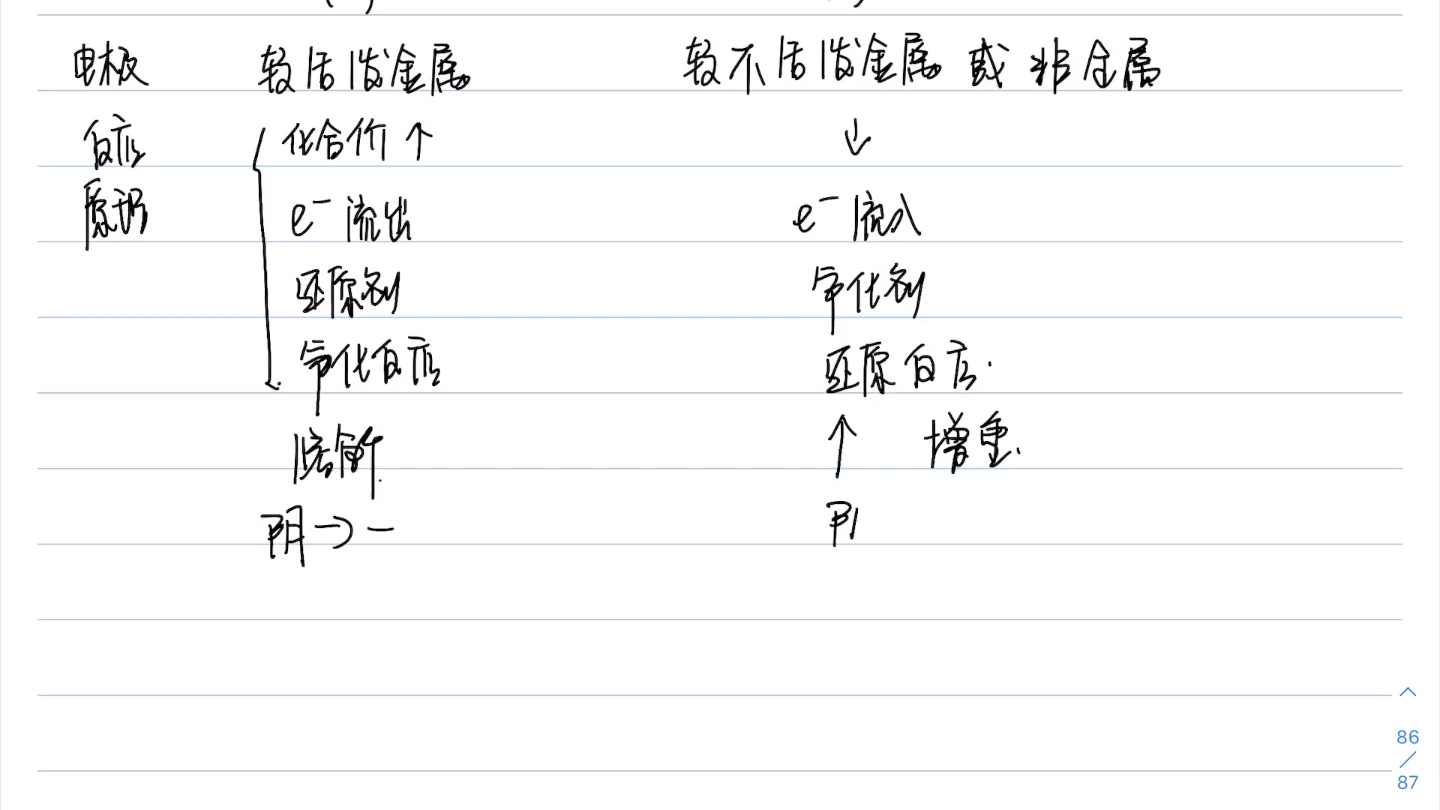 电极 较活泼金属 较不活泼金属 或 非金属
反应 化合价 ↑ ↓
原理 e⁻ 流出 e⁻ 流入
还原剂 氧化剂
氧化反应 还原反应.
溶解. ↑ 增重.
阴→-
86
/
87